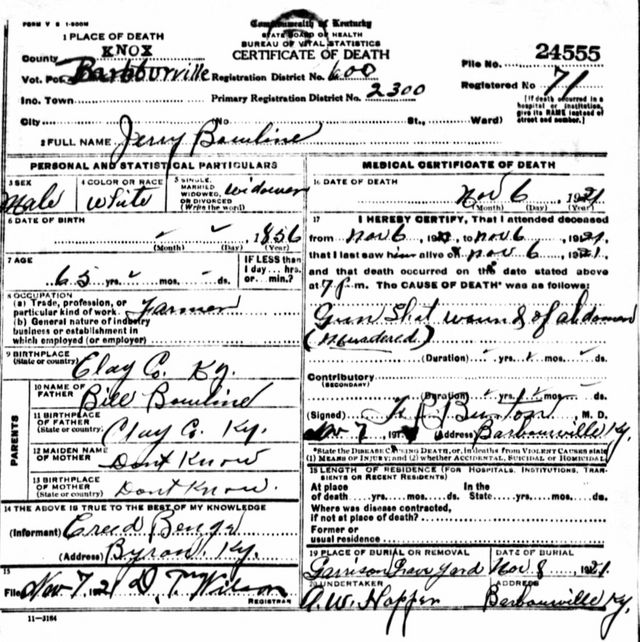 FORM V S 1-500M
Commonwealth of Kentucky
STATE BOARD OF HEALTH
BUREAU OF VITAL STATISTICS
CERTIFICATE OF DEATH
1 PLACE OF DEATH
County KNOX
Vot. Pct. Barbourville Registration District No. 600
Inc. Town Primary Registration District No. 2300
City (No St., Ward)
File No. 24555
Registered No 71
[If death occurred in a hospital or institution, give its NAME instead of street and number.]
2 FULL NAME Jerry Bowline
PERSONAL AND STATISTICAL PARTICULARS
3 SEX Male
4 COLOR OR RACE White
5 SINGLE, MARRIED WIDOWED, OR DIVORCED (Write the word) Widower
6 DATE OF BIRTH
1856
(Month) (Day) (Year)
7 AGE 65 yrs. mos. ds.
IF LESS than 1 day... hrs. or min.?
8 OCCUPATION
(a) Trade, profession, or particular kind of work Farmer
(b) General nature of industry business or establishment in which employed (or employer)
9 BIRTHPLACE (State or country) Clay Co. Ky.
PARENTS
10 NAME OF FATHER Bill Bowline
11 BIRTHPLACE OF FATHER (State or country) Clay Co. Ky.
12 MAIDEN NAME OF MOTHER Dont Know
13 BIRTHPLACE OF MOTHER (State or country) Dont Know.
14 THE ABOVE IS TRUE TO THE BEST OF MY KNOWLEDGE
(Informant) Creed Benge
(Address) Byron, Ky.
15
Filed Nov 7, 1921 D. T. Wilson
REGISTRAR
11-3184
MEDICAL CERTIFICATE OF DEATH
16 DATE OF DEATH
Nov 6 1921
(Month) (Day) (Year)
17 I HEREBY CERTIFY, That I attended deceased
from Nov 6 1921, to Nov 6, 1921
that I last saw him alive on Nov 6, 1921
and that death occurred on the date stated above
at 7 P.m. The CAUSE OF DEATH* was as follows:
Gun Shot wound of abdomen
(Murdered)
(Duration) yrs. mos. ds.
Contributory
(SECONDARY)
(Duration) yrs. mos. ds.
(Signed) Burton M. D.
Nov 7, 192 (Address) Barbourville Ky.
*State the DISEASE CAUSING DEATH, or, in deaths from VIOLENT CAUSES state (1) MEANS OF INJURY; and (2) whether ACCIDENTAL, SUICIDAL or HOMICIDAL
18 LENGTH OF RESIDENCE (FOR HOSPITALS, INSTITUTIONS, TRANSIENTS OR RECENT RESIDENTS)
At place of death yrs. mos. ds. In the State yrs. mos. ds.
Where was disease contracted, if not at place of death?
Former or usual residence
19 PLACE OF BURIAL OR REMOVAL Garrison Grave Yard
DATE OF BURIAL Nov 8 1921
20 UNDERTAKER A. W. Hopper
ADDRESS Barbourville Ky.